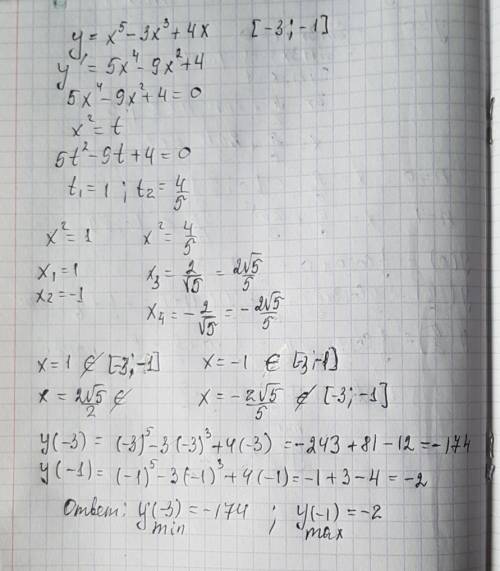 y = x⁵ - 3x³ + 4x [-3; -1]
y' = 5x⁴ - 9x² + 4
5x⁴ - 9x² + 4 = 0
x² = t
5t² - 9t + 4 = 0
t₁ = 1 ; t₂ = 4/5
x² = 1 x² = 4/5
x₁ = 1 x₃ = 2/√5 = 2√5/5
x₂ = -1 x₄ = -2/√5 = -2√5/5
x = 1 ∉ [-3; -1] x = -1 ∈ [-3; -1]
x = 2√5/2 ∉ x = -2√5/5 ∉ [-3; -1]
y(-3) = (-3)⁵ - 3(-3)³ + 4(-3) = -243 + 81 - 12 = -174
y(-1) = (-1)⁵ - 3(-1)³ + 4(-1) = -1 + 3 - 4 = -2
Ответ: y(-3) = -174 ; y(-1) = -2
min max